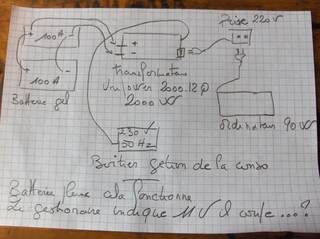 Prise 220V
100A
100A
- +
+ -
Batterie gel
transformateur
2000.12
2000 W
ordinateur 90W
230 V
50 Hz
Boitier gestion de la conso
Batterie pleine cela fonctionne
Le gestionaire indique 11V il coupe...?